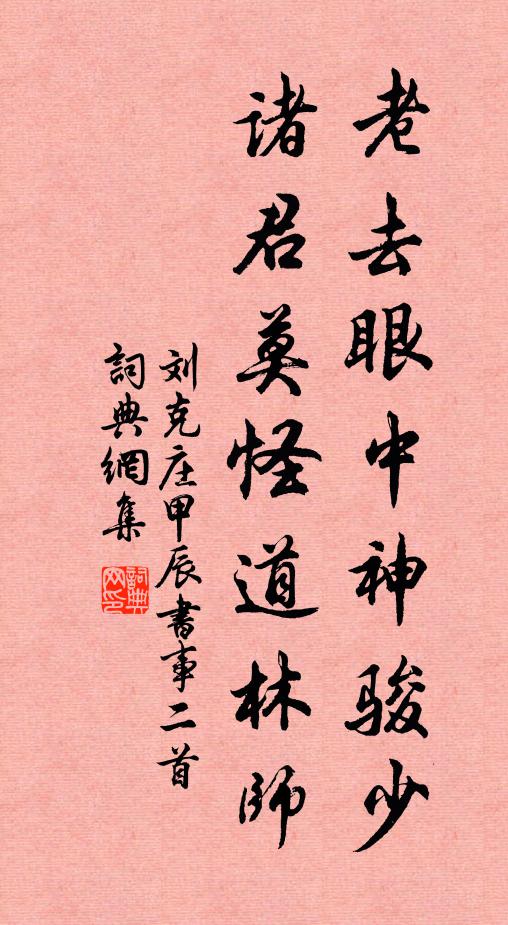 老去眼中神骏少
诸君莫怪道林師
刘克庄甲辰書事二首
詞典網集
詞典网印